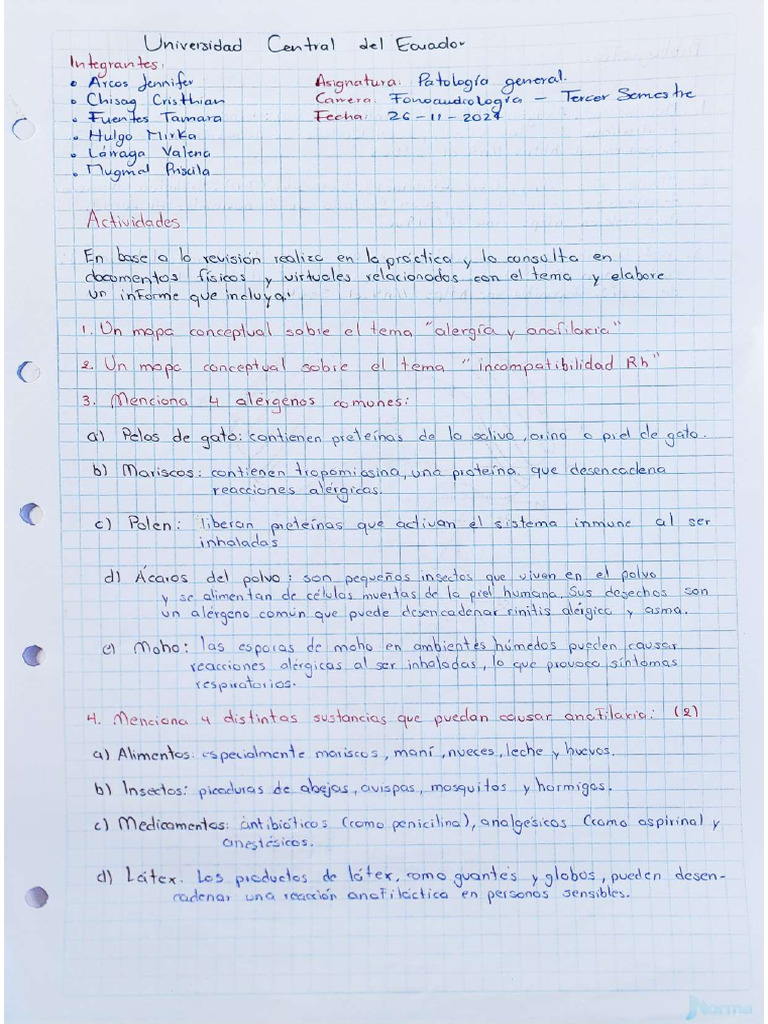 Universidad Central del Ecuador
Integrantes:
• Arcos Jennifer
Asignatura: Patología general.
• Chisag Cristhian
Carrera: Fonoaudiología – Tercer Semestre
• Fuentes Tamara
Fecha: 26-11-2024
• Hulgo Mirka
• Lárraga Valeria
• Mugmal Priscila
Actividades
En base a la revisión realiza en la práctica y la consulta en
documentos físicos y virtuales relacionados con el tema y elabore
un informe que incluya:
1. Un mapa conceptual sobre el tema "alergía y anafilaxia"
2. Un mapa conceptual sobre el tema "incompatibilidad Rh"
3. Menciona 4 alérgenos comunes:
a) Pelos de gato: contienen proteínas de la saliva, orina o piel de gato.
b) Mariscos: contienen tropomiosina, una proteína que desencadena
reacciones alérgicas.
c) Polen: liberan proteínas que activan el sistema inmune al ser
inhaladas
d) Ácaros del polvo: son pequeños insectos que viven en el polvo
y se alimentan de células muertas de la piel humana. Sus desechos son
un alérgeno común que puede desencadenar rinitis alérgica y asma.
e) Moho: las esporas de moho en ambientes húmedos pueden causar
reacciones alérgicas al ser inhaladas, lo que provoca síntomas
respiratorios.
4. Menciona 4 distintas sustancias que puedan causar anafilaxia: (2)
a) Alimentos: especialmente mariscos, maní, nueces, leche y huevos.
b) Insectos: picaduras de abejas, avispas, mosquitos y hormigas.
c) Medicamentos: antibióticos (como penicilina), analgésicos (como aspirina) y
anestésicos.
d) Látex. Los productos de látex, como guantes y globos, pueden desen-
cadenar una reacción anafiláctica en personas sensibles.
Norma